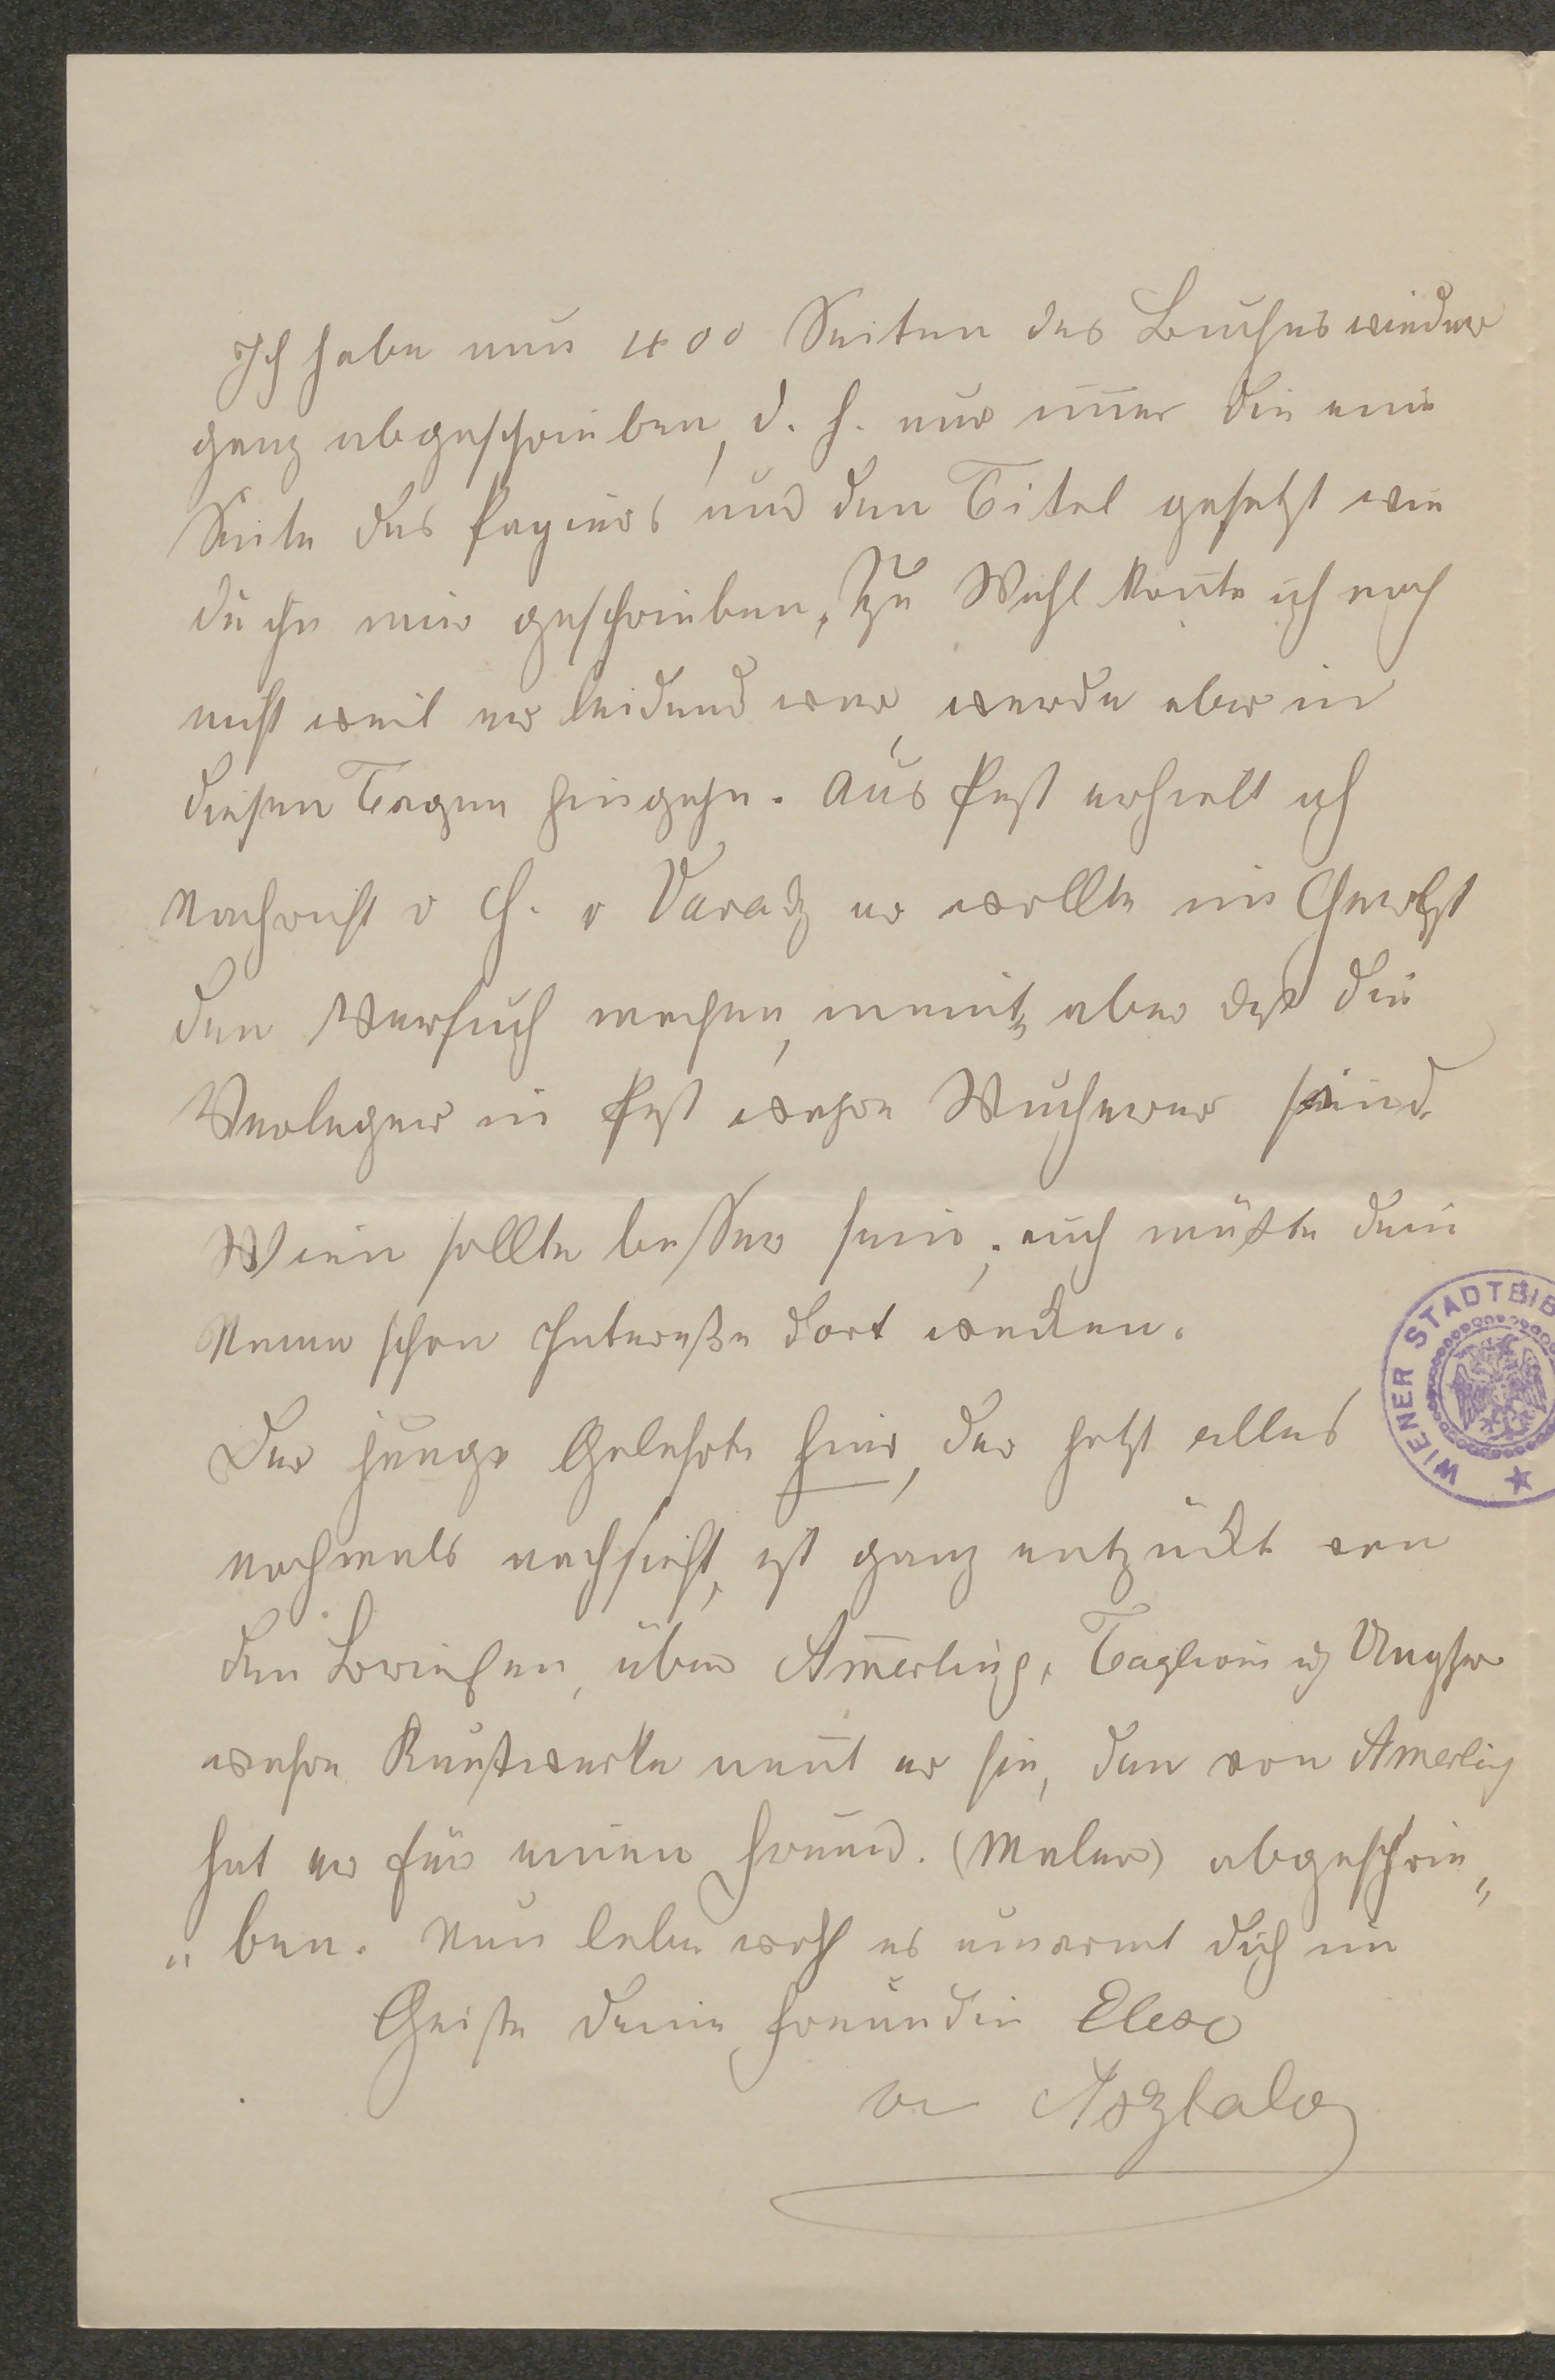 Ich habe nun 400 Seiten des Buches wieder
ganz abgeschrieben, d. h. nur im̅er die eine
Seite des Papiers und den Titel gesetzt wie
du ihn mir geschrieben. Zu Wehl kon̅te ich noch
nicht weil er leidend war, werde aber in
diesen Tagen hingehn. Aus Pest erhielt ich
Nachricht v H. v Varady er wollte im Herbst
den Versuch machen, meint aber daß die
Verleger in Pest wahre Wucherer sind.
Wien sollte besser sein; auch müßte dein
Name schon Intereße dort wecken.
Der junge Gelehrte hier, der jetzt alles
nochmals nachsieht, ist ganz entzückt von
den Briefen, über Am̅erling, Taglioni u Ungher
wahre Kunstwerke nen̅t er sie, den von Amerling
hat er für einen Freund. (Maler) abgeschrie„
„ben. Nun lebe wohl es umarmt dich im
Geiste deine Freundin
von Asztalos
WIENER STADTBIB